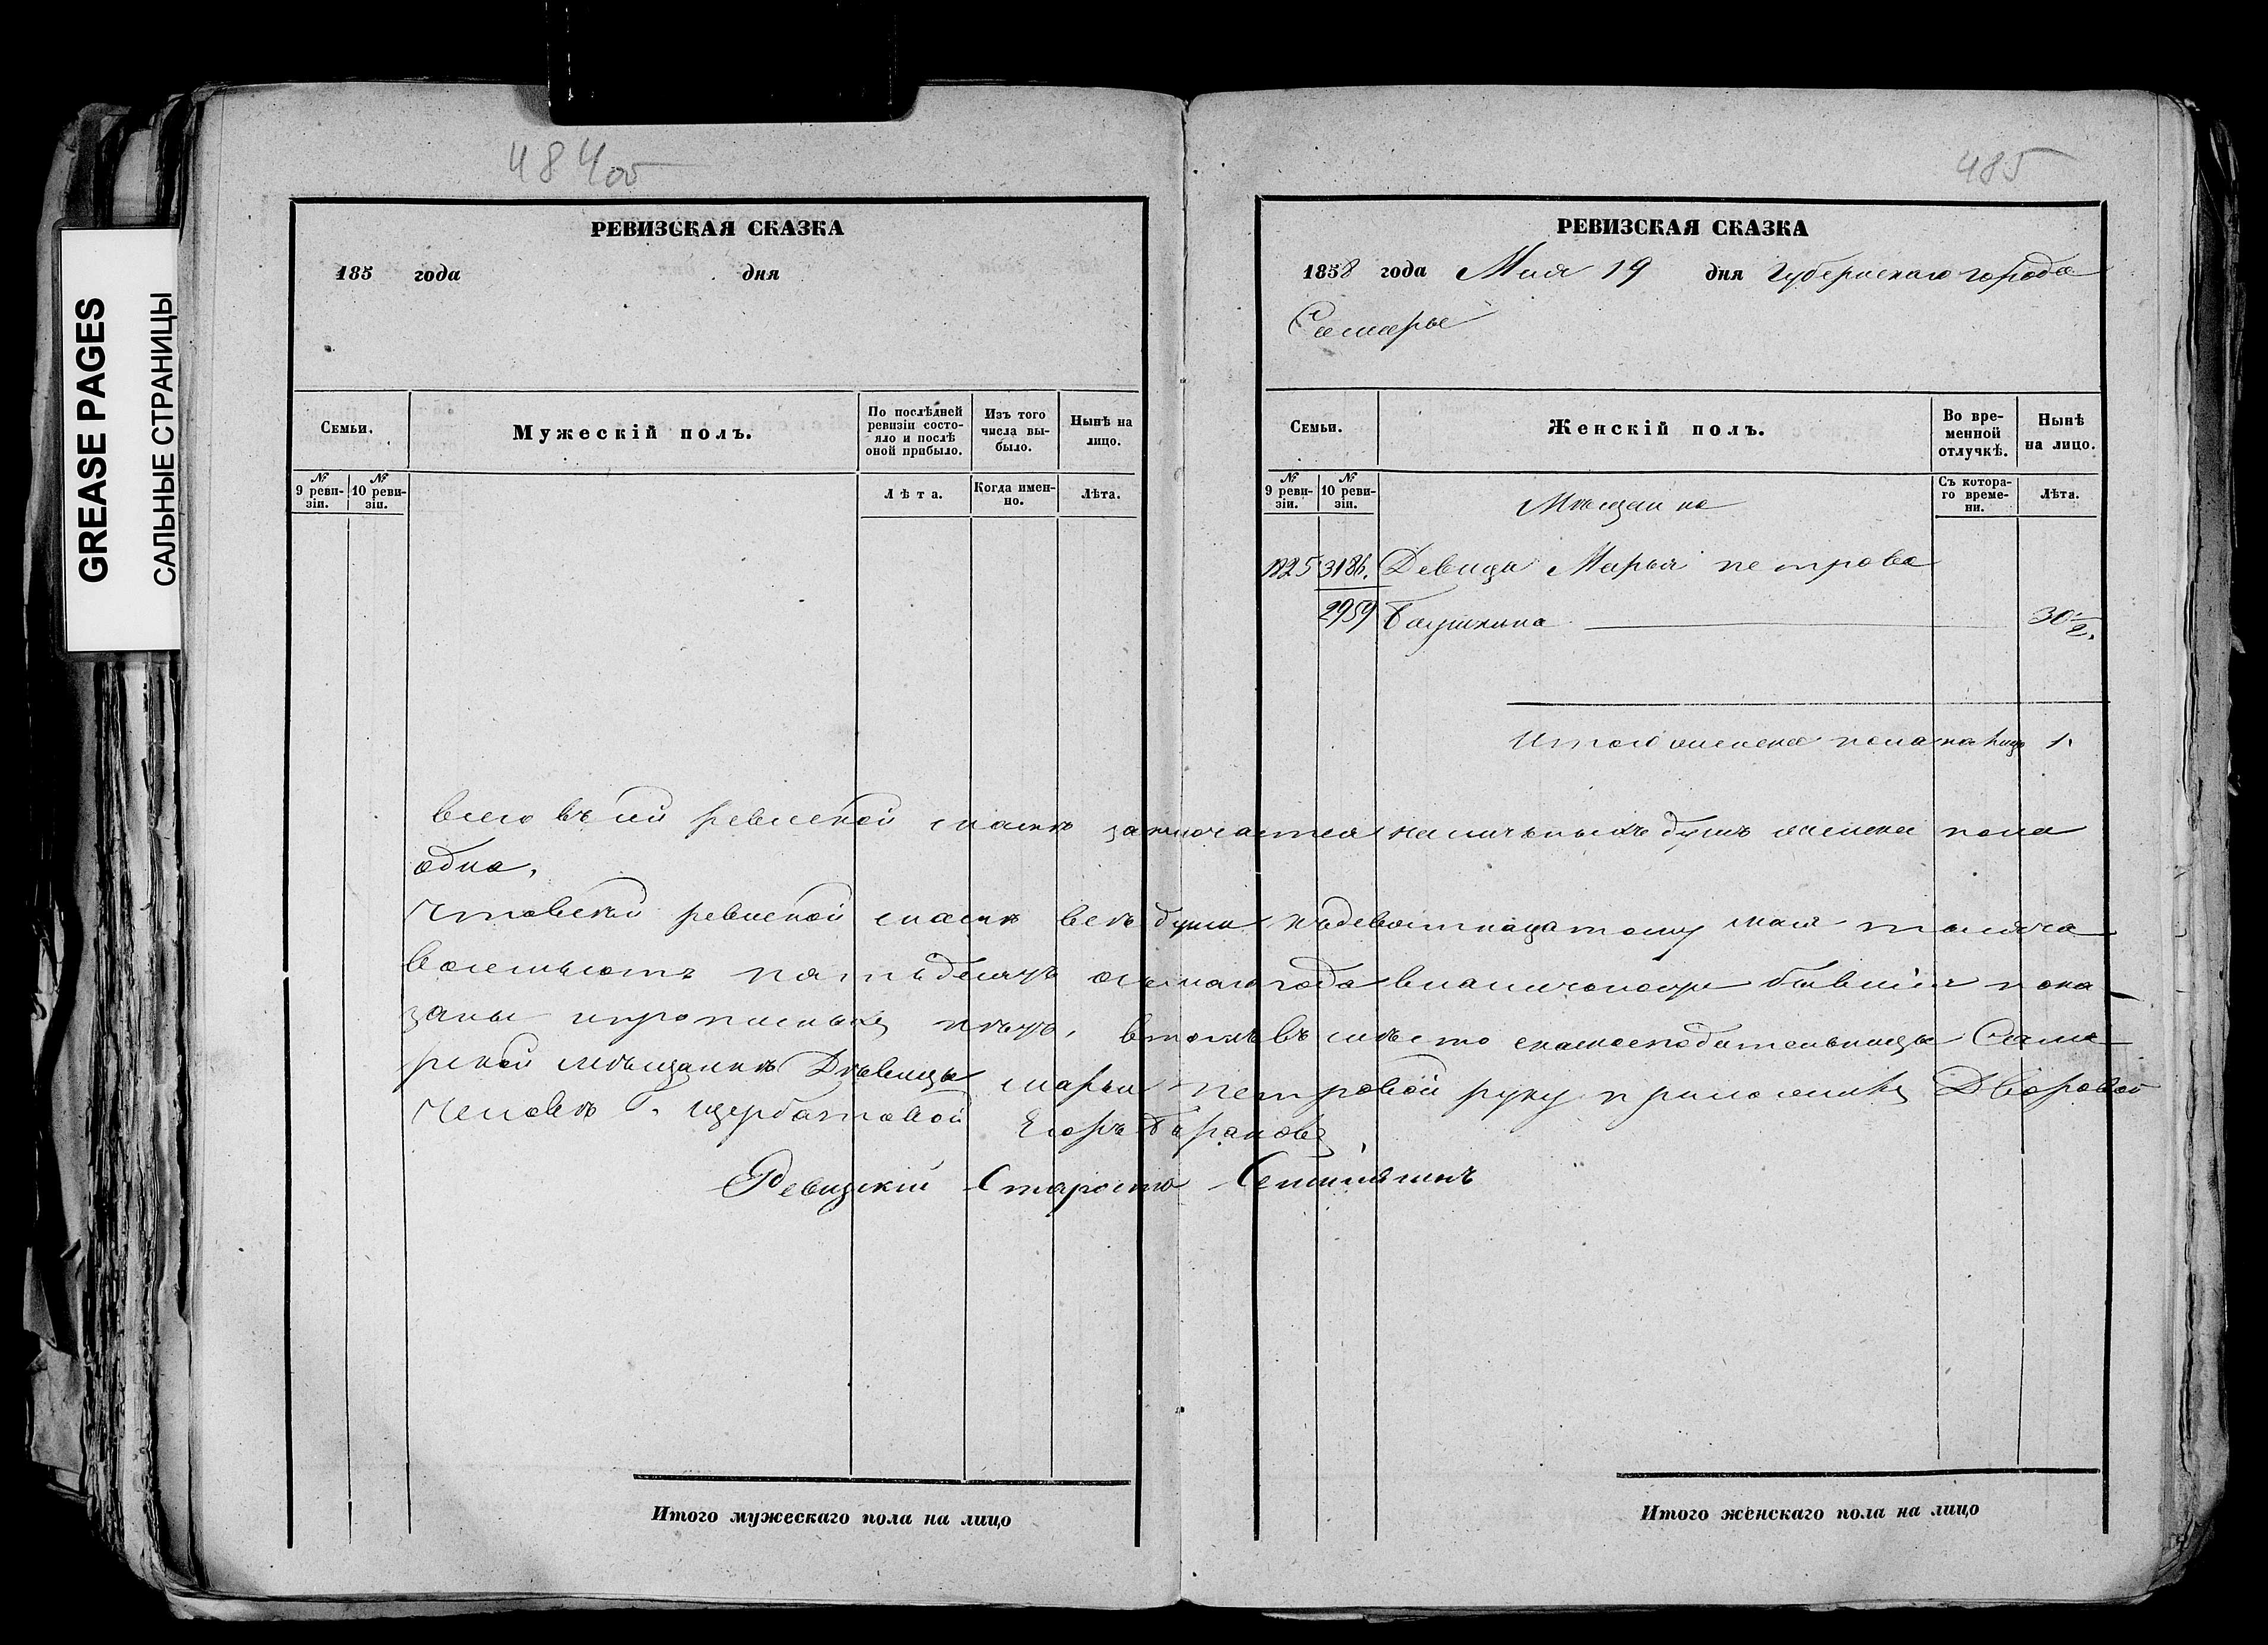 GREASE PAGES
САЛЬНЫЕ СТРАНИЦЫ
484об
РЕВИЗСКАЯ СКАЗКА
185 года дня
Семьи.
Мужескій полъ.
По послѣдней ревизіи состояло и послѣ оной прибыло.
Изъ того числа выбыло.
Нынѣ на лицо.
№ 9 ревизіи.
№ 10 ревизіи.
Лѣта.
Когда именно.
Лѣта.
Итого мужескаго пола на лицо
485
РЕВИЗСКАЯ СКАЗКА
1858 года Мая 19 дня Губернскаго города
Самары
Семьи.
Женскій полъ.
Во временной отлучкѣ.
Нынѣ на лицо.
№ 9 ревизіи.
№ 10 ревизіи.
Мѣщанка
Съ котораго времени.
Лѣта.
1825 3186. Девица Марья петрова
2959 30 1/2.
Итого женска пола на лицо 1.
всего въ сей ревиской сказкѣ заключается наличныхъ душъ женска пола
одна,
Что в сей ревиской сказкѣ все души къ девятнацатому мая тысяча
восемьсотъ пятьдесятъ осьмаго года в наличности бывшія пока
заны и прописных нѣтъ, в томъ въ мѣсто сказкоподательницы Сама
рской мѣщанки Дѣвицы марьи петровой руку приложилъ Дворовой
Человѣкъ Г. щербатовой Егоръ Барановъ
Ревизскій Староста
Итого женскаго пола на лицо